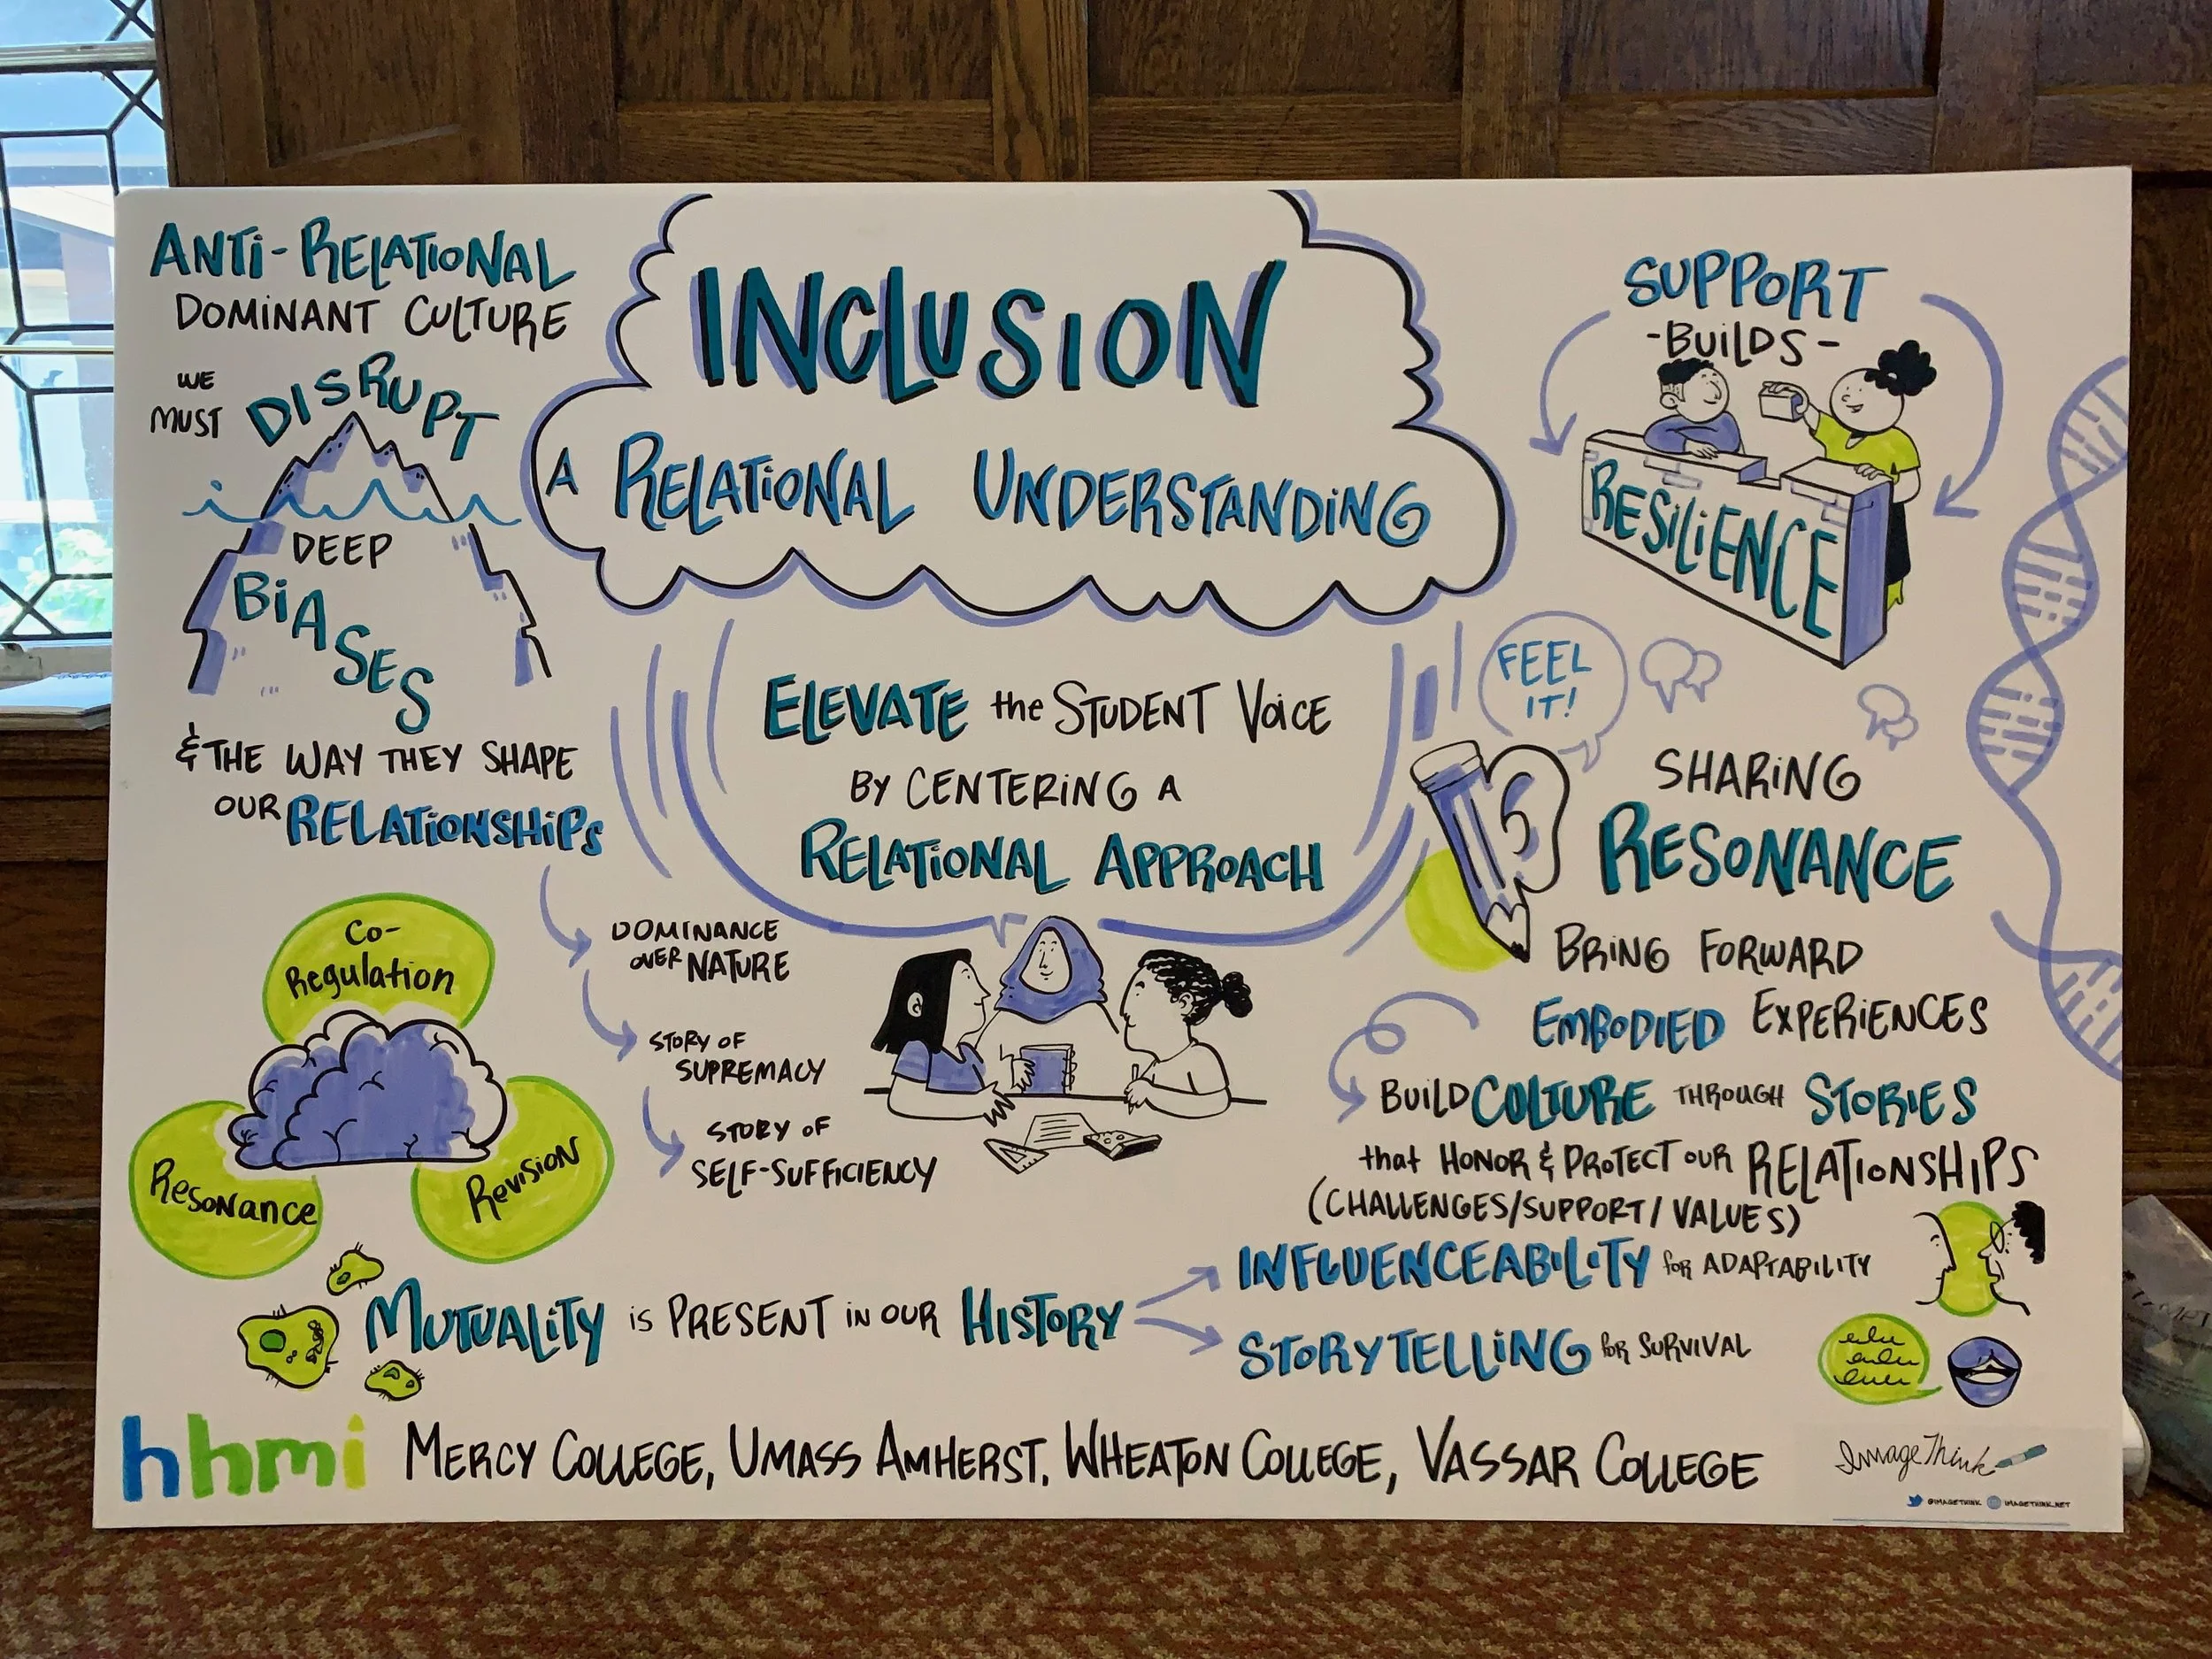 ANTI-RELATIONAL
DOMINANT CULTURE
WE
MUST
DISRUPT
DEEP
BIASES
& THE WAY THEY SHAPE
OUR RELATIONSHIPS
DOMINANCE
OVER NATURE
STORY OF
SUPREMACY
STORY OF
SELF-SUFFICIENCY
Co-
Regulation
Resonance
Revision
INCLUSION
A RELATIONAL UNDERSTANDING
ELEVATE the STUDENT VOICE
BY CENTERING A
RELATIONAL APPROACH
SUPPORT
-BUILDS-
RESILIENCE
FEEL
IT!
SHARING
RESONANCE
BRING FORWARD
EMBODIED EXPERIENCES
BUILD CULTURE THROUGH STORIES
that HONOR & PROTECT OUR RELATIONSHIPS
(CHALLENGES/SUPPORT/VALUES)
MUTUALITY is PRESENT IN OUR HISTORY
INFLUENCEABILITY for ADAPTABILITY
STORYTELLING for SURVIVAL
hhmi MERCY COLLEGE, UMASS AMHERST, WHEATON COLLEGE, VASSAR COLLEGE
ImageThink
@IMAGETHINK IMAGETHINK.NET